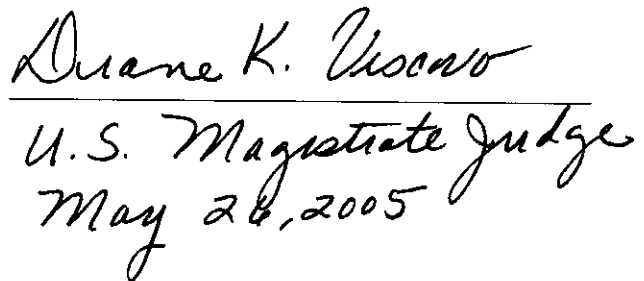 Diane K. Vescovo
U.S. Magistrate Judge
May 26, 2005